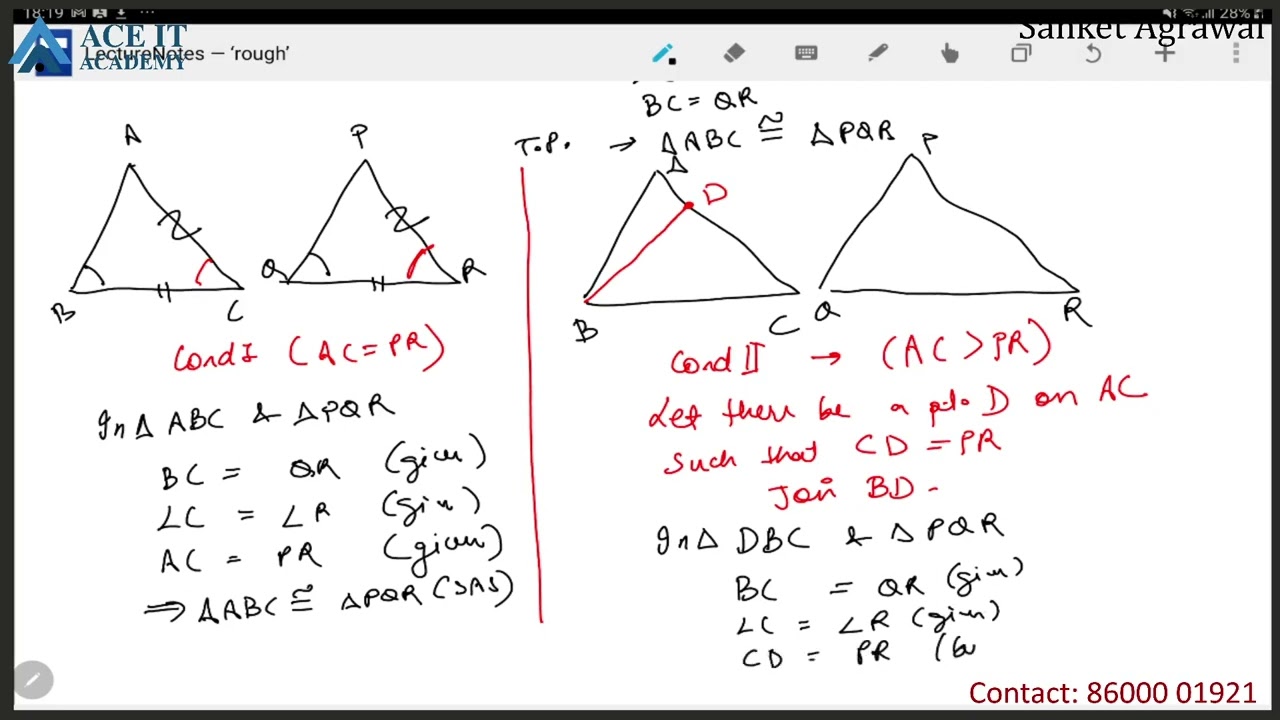 18:19
28%
ACE IT
ACADEMY
LectureNotes – ‘rough’
Sanket Agrawal
BC = QR
T.P. → ΔABC ≅ ΔPQR
A
B
C
P
Q
R
A
D
B
C
P
Q
R
Cond I (AC = PR)
In Δ ABC & ΔPQR
BC = QR (given)
∠C = ∠R (given)
AC = PR (given)
⇒ ΔABC ≅ ΔPQR (SAS)
Cond II → (AC > PR)
Let there be a pt. D on AC
such that CD = PR
Join BD -
In Δ DBC & Δ PQR
BC = QR (given)
∠C = ∠R (given)
CD = PR
Contact: 86000 01921